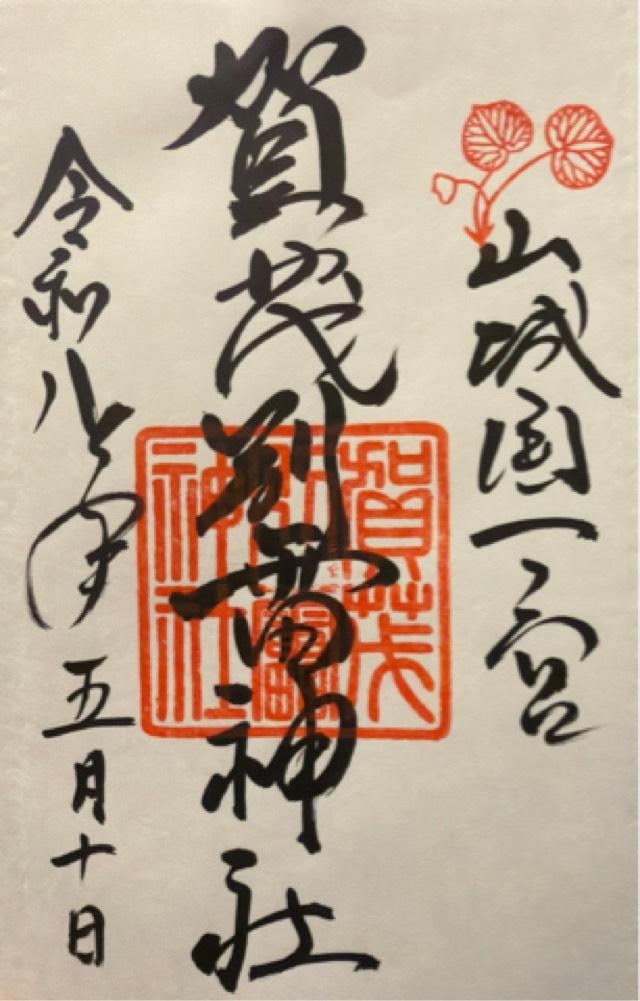 山城国一宮
賀茂別雷神社
賀茂
別雷
神社
令和八年五月十日